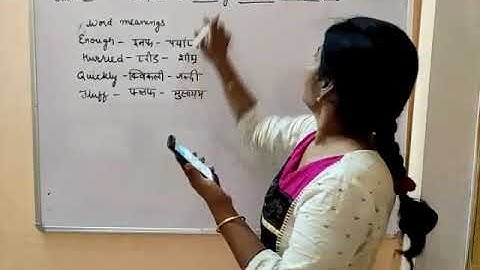 word meanings
Enough - इनफ - पर्याप्त
Hurried - हरीड - शीघ्र
Quickly - क्विकली - जल्दी
Fluff - फ्लफ - मुलायम